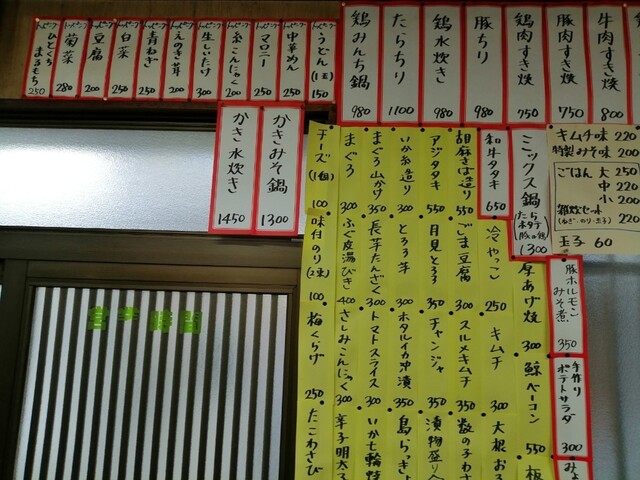 牛肉すき焼 800
豚肉すき焼 750
鶏肉すき焼 750
豚ちり 980
鶏水炊き 980
たらちり 1100
鶏みんち鍋 980
トッピング うどん(1玉) 150
トッピング 中華めん 250
トッピング マロニー 250
トッピング 糸こんにゃく 200
トッピング 生しいたけ 300
トッピング えのき茸 200
トッピング 青ねぎ 250
トッピング 白菜 250
トッピング 豆腐 200
トッピング 菊菜 280
トッピング ひとくちまるもち 250
かきみそ鍋 1300
かき水炊き 1450
キムチ味 220
特製みそ味 200
ごはん 大 250
中 220
小 200
雑炊セット 220
(ねぎ・のり・玉子)
玉子 60
ミックス鍋 1300
和牛タタキ 650
胡麻さば造り 550
アジタタキ 550
いか糸造り 300
まぐろ山かけ 350
まぐろ 300
チーズ(1個) 100
冷やっこ 250
ごま豆腐 300
月見とろろ 350
とろろ芋 300
長芋たんざく 300
ふぐ皮湯びき 400
味付のり(2束) 100
豚ホルモンみそ煮 350
厚あげ焼 300
キムチ 300
スルメキムチ 350
チャンジャ 350
ホタルイカ沖漬 350
トマトスライス 300
さしみこんにゃく 300
梅くらげ 250
手作りポテトサラダ 300
鯨ベーコン 550
大根お
数の子わさ
漬物盛り
島らっきょ
いか七輪
辛子明太
たこわさび
みょ
板
営業時間